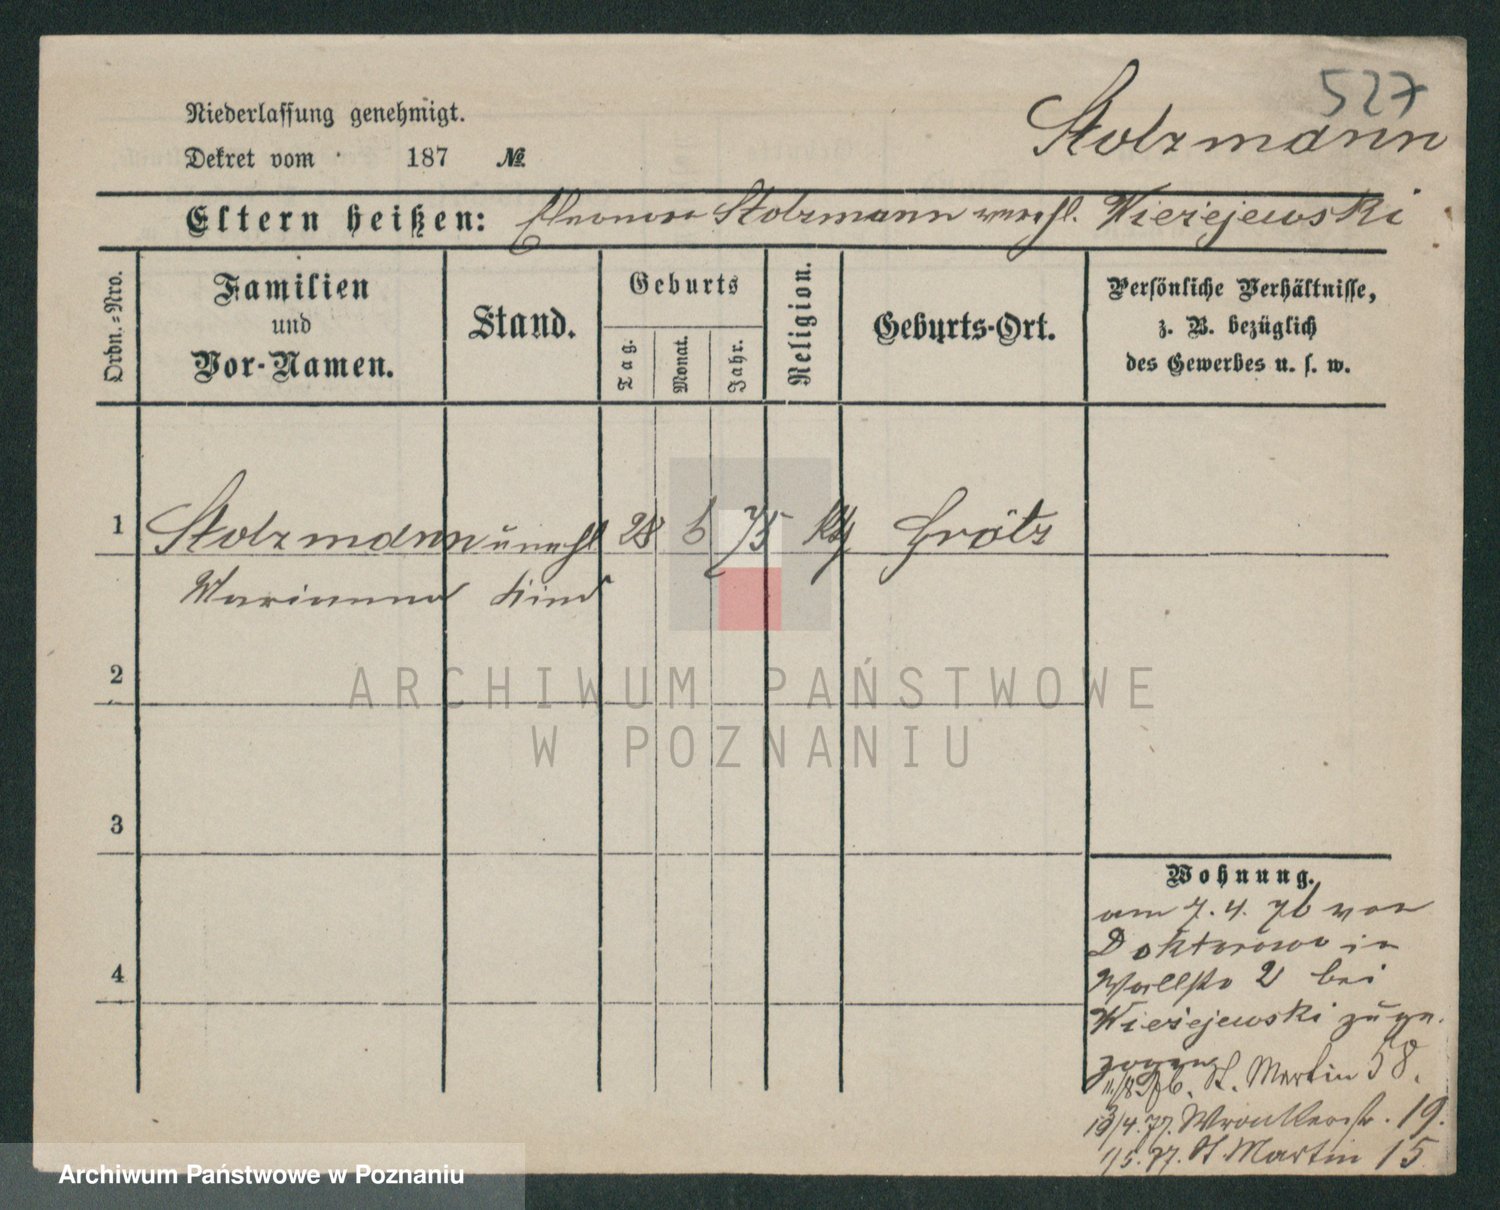 527
Stolzmann
Niederlassung genehmigt.
Dekret vom 187 №
Eltern heißen: Eleonora Stolzmann verehl. Wierejewski
Ordn.-Nro.
Familien
und
Vor-Namen.
Stand.
Geburts
Tag.
Monat.
Jahr.
Religion.
Geburts-Ort.
Persönliche Verhältnisse,
z. B. bezüglich
des Gewerbes u. s. w.
1 Stolzmann unehl 28 6 75 kth Grätz
Marianna Kind
2
3
4
Wohnung.
am 7. 4. 76 von
Doktorowo in
Wallstr 2 bei
Wierejewski zuge-
zogen
11/8 76. St. Martin 58.
19/4. 77. Wronkerstr. 19.
1/5. 77. St Martin 15
ARCHIWUM PAŃSTWOWE
W POZNANIU
Archiwum Państwowe w Poznaniu